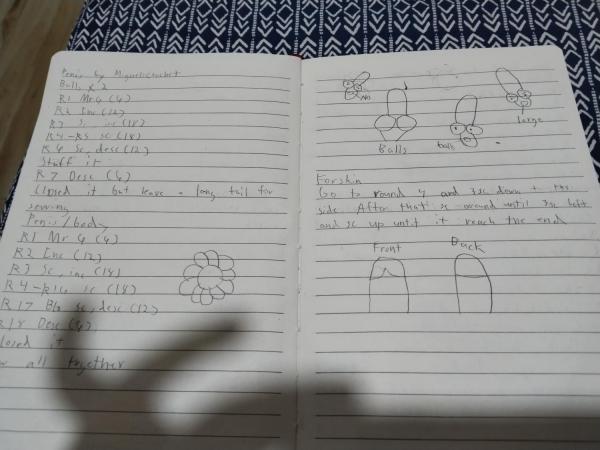 Penis by Miguelscrochet
Balls x 2
R1 Mr 6 (6)
R2 Inc (12)
R3 Sc, inc (18)
R4-R5 sc (18)
R6 Sc, desc (12)
Stuff it
R7 Desc (6)
Closed it but leave a long tail for
sewing
Penis/body
R1 Mr 6 (6)
R2 Inc (12)
R3 Sc, inc (18)
R4-R16 sc (18)
R17 Blo sc, desc (12)
R18 Desc (6)
Closed it
all together
No
Balls
balls
large
Forskin
Go to round 7 and 3sc down + the
side. After that sc around until 3sc left
and sc up until it reach the end
Front
Back